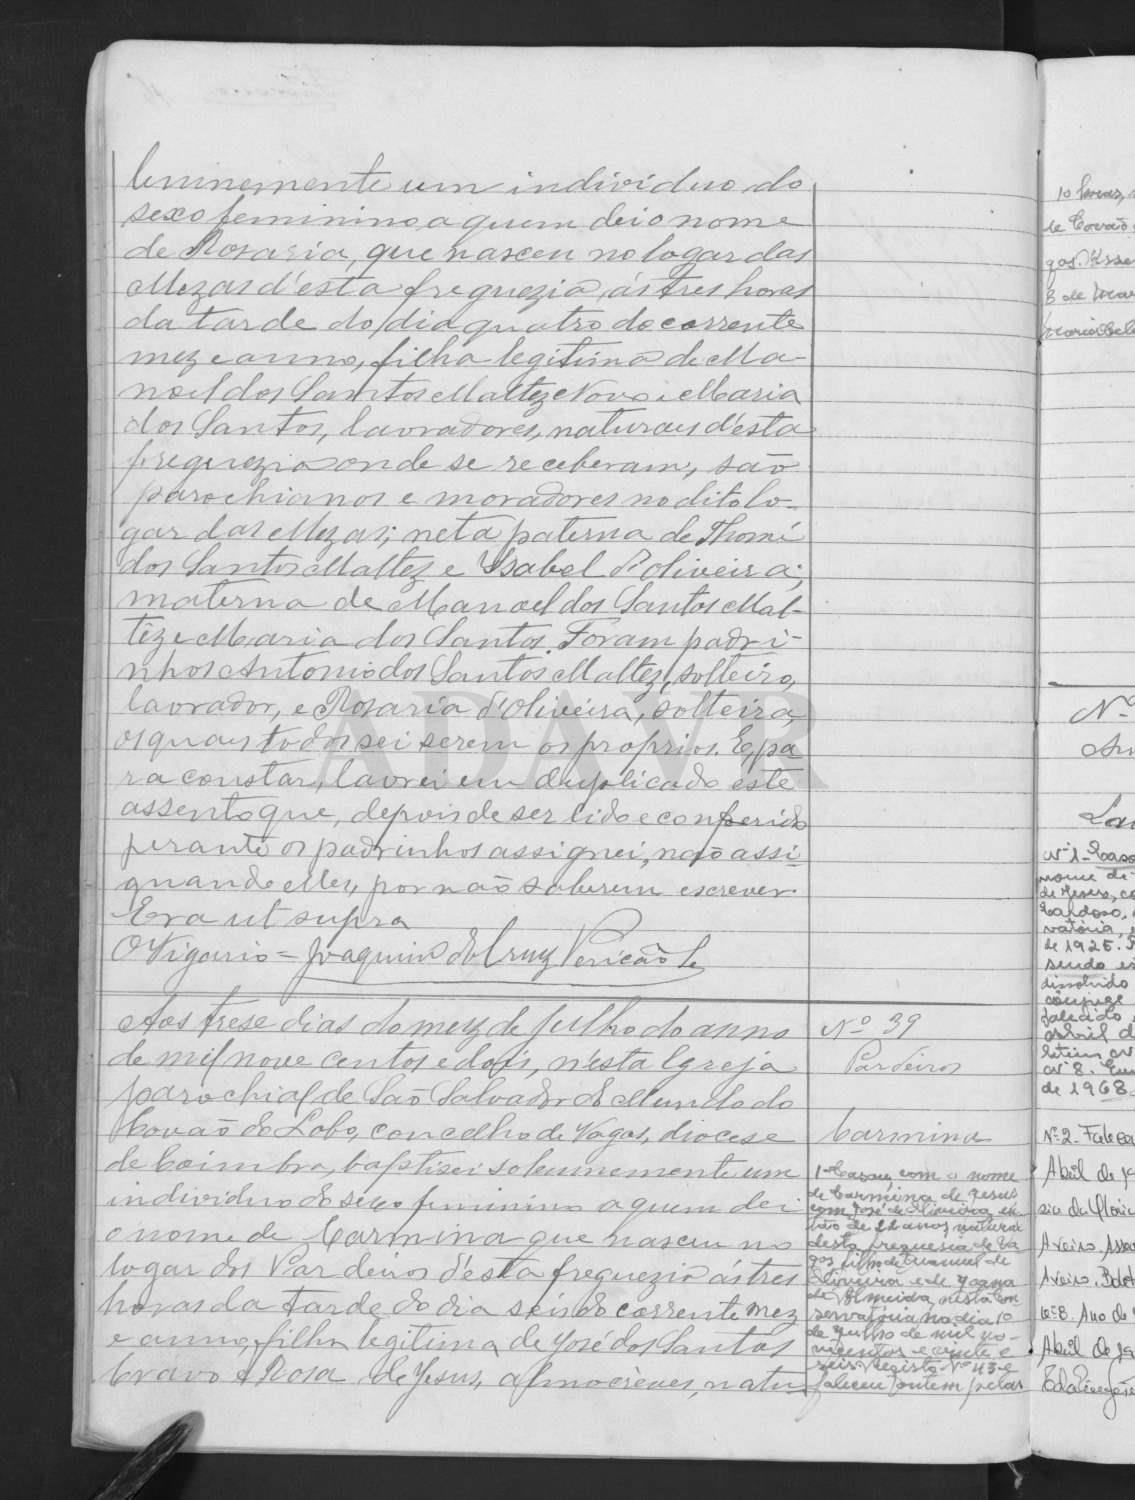 lemnemente um individuo do
sexo feminino a quem dei o nome
de Rosaria, que nasceu no logar das
Mezas d'esta freguezia, ás tres horas
da tarde do dia quatro do corrente
mez e anno, filha legitima de Ma-
noel dos Santos Maltez Novo e Maria
dos Santos, lavradores, naturaes d'esta
freguezia onde se receberam, são
parochianos e moradores no dito lo-
gar das Mezas; neta paterna de Thomé
dos Santos Maltez e Ysabel d'Oliveira;
materna de Manoel dos Santos Mal-
tez e Maria dos Santos. Foram padri-
nhos Antonio dos Santos Maltez, solteiro,
lavrador, e Rosaria d'Oliveira, solteira,
os quaes todos sei serem os proprios. E, pa
ra constar, lavrei em duplicado este
assento que, depois de ser lido e conferido
perante os padrinhos assignei, não assi
gnando elles, por não saberem escrever.
Era ut supra
O Vigario = Joaquim da Cruz Pericão
Aos trese dias do mez de Julho do anno
de mil nove centos e dois, n'esta Egreja
parochial de São Salvador do Mundo do
Covão do Lobo, concelho de Vagos, diocese
de Coimbra, baptisei solemnemente um
individuo do sexo feminino a quem dei
o nome de Carmina que nasceu no
logar dos Pardeiros d'esta freguezia ás tres
horas da tarde do dia seis do corrente mez
e anno, filha legitima de José dos Santos
Cravo e Rosa de Jesus, almocreves, natu
Nº 39
Pardeiros
Carmina
1º Casou com o nome
de Carmina de Jesus
com José de Oliveira, en-
tão de 22 anos, natural
desta freguesia de Va
gos, filho de Manuel de
Oliveira e de Joana
de Almeida, nesta Con
servatória no dia 1º
de Julho de mil no-
vecentos e vinte e
seis. Registo Nº 43 e
faleceu ontem pelas
10 horas,
de Covão
gos.
3 de
Nº
Nº 1 - Casou
nome de
de Jesus, co
Cardoso,
vatória,
de 1925.
sendo
dissolvido
cônjuge
falecido
abril d
Nº 8.
de 1968
Nº 2 - Falece
Abril de 19
Aveiro. Asse
Aveiro. Bolet
nº 8. Ano de
Abril de 19
ADAVR